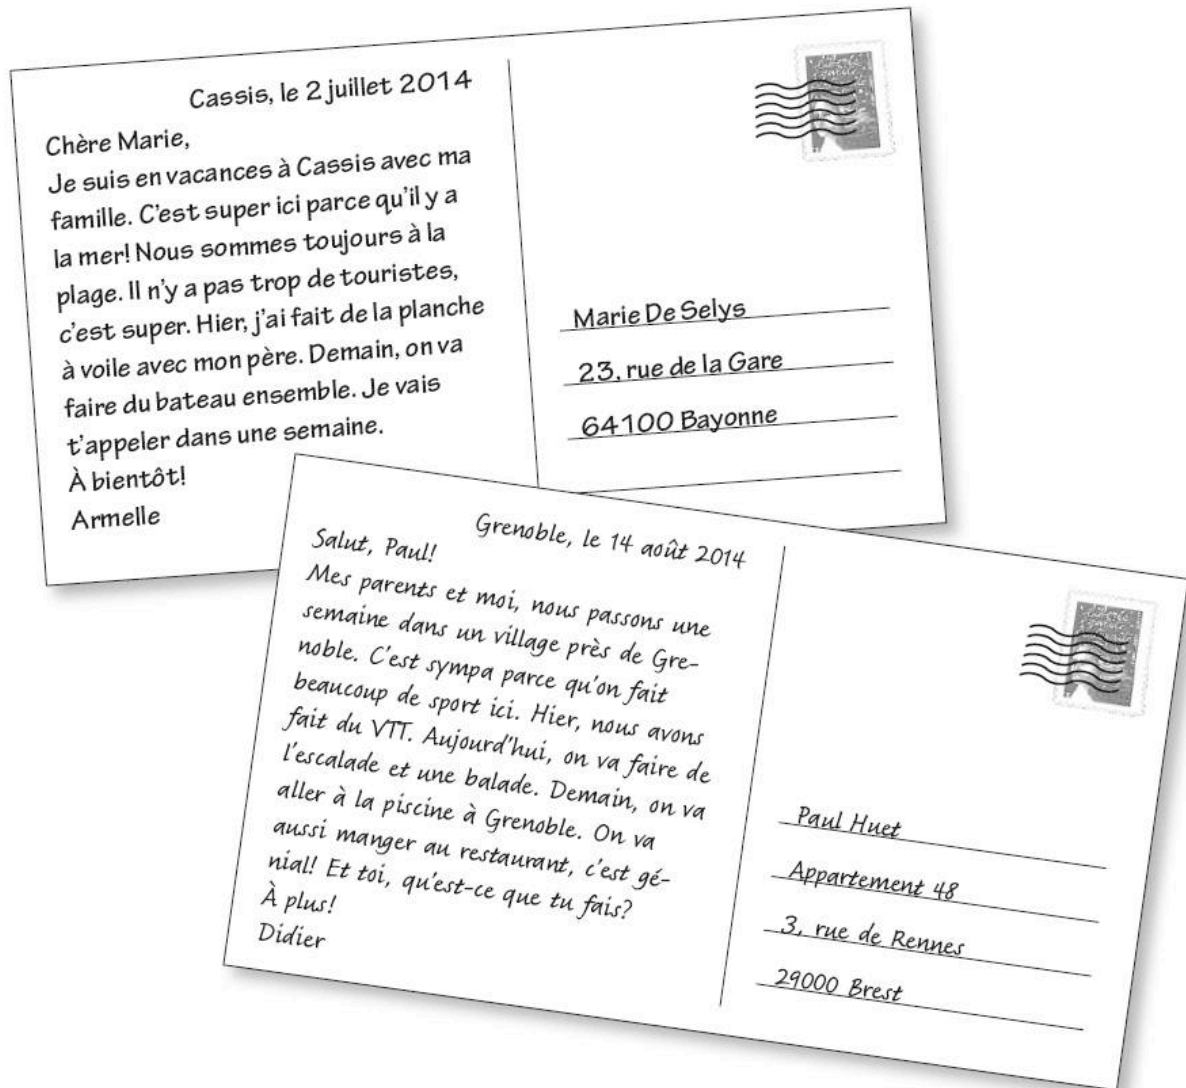 Cassis, le 2 juillet 2014
Chère Marie,
Je suis en vacances à Cassis avec ma
famille. C'est super ici parce qu'il y a
la mer! Nous sommes toujours à la
plage. Il n'y a pas trop de touristes,
c'est super. Hier, j'ai fait de la planche
à voile avec mon père. Demain, on va
faire du bateau ensemble. Je vais
t'appeler dans une semaine.
À bientôt!
Armelle
Marie De Selys
23, rue de la Gare
64100 Bayonne
Grenoble, le 14 août 2014
Salut, Paul!
Mes parents et moi, nous passons une
semaine dans un village près de Gre-
noble. C'est sympa parce qu'on fait
beaucoup de sport ici. Hier, nous avons
fait du VTT. Aujourd'hui, on va faire de
l'escalade et une balade. Demain, on va
aller à la piscine à Grenoble. On va
aussi manger au restaurant, c'est gé-
nial! Et toi, qu'est-ce que tu fais?
À plus!
Didier
Paul Huet
Appartement 48
3, rue de Rennes
29000 Brest